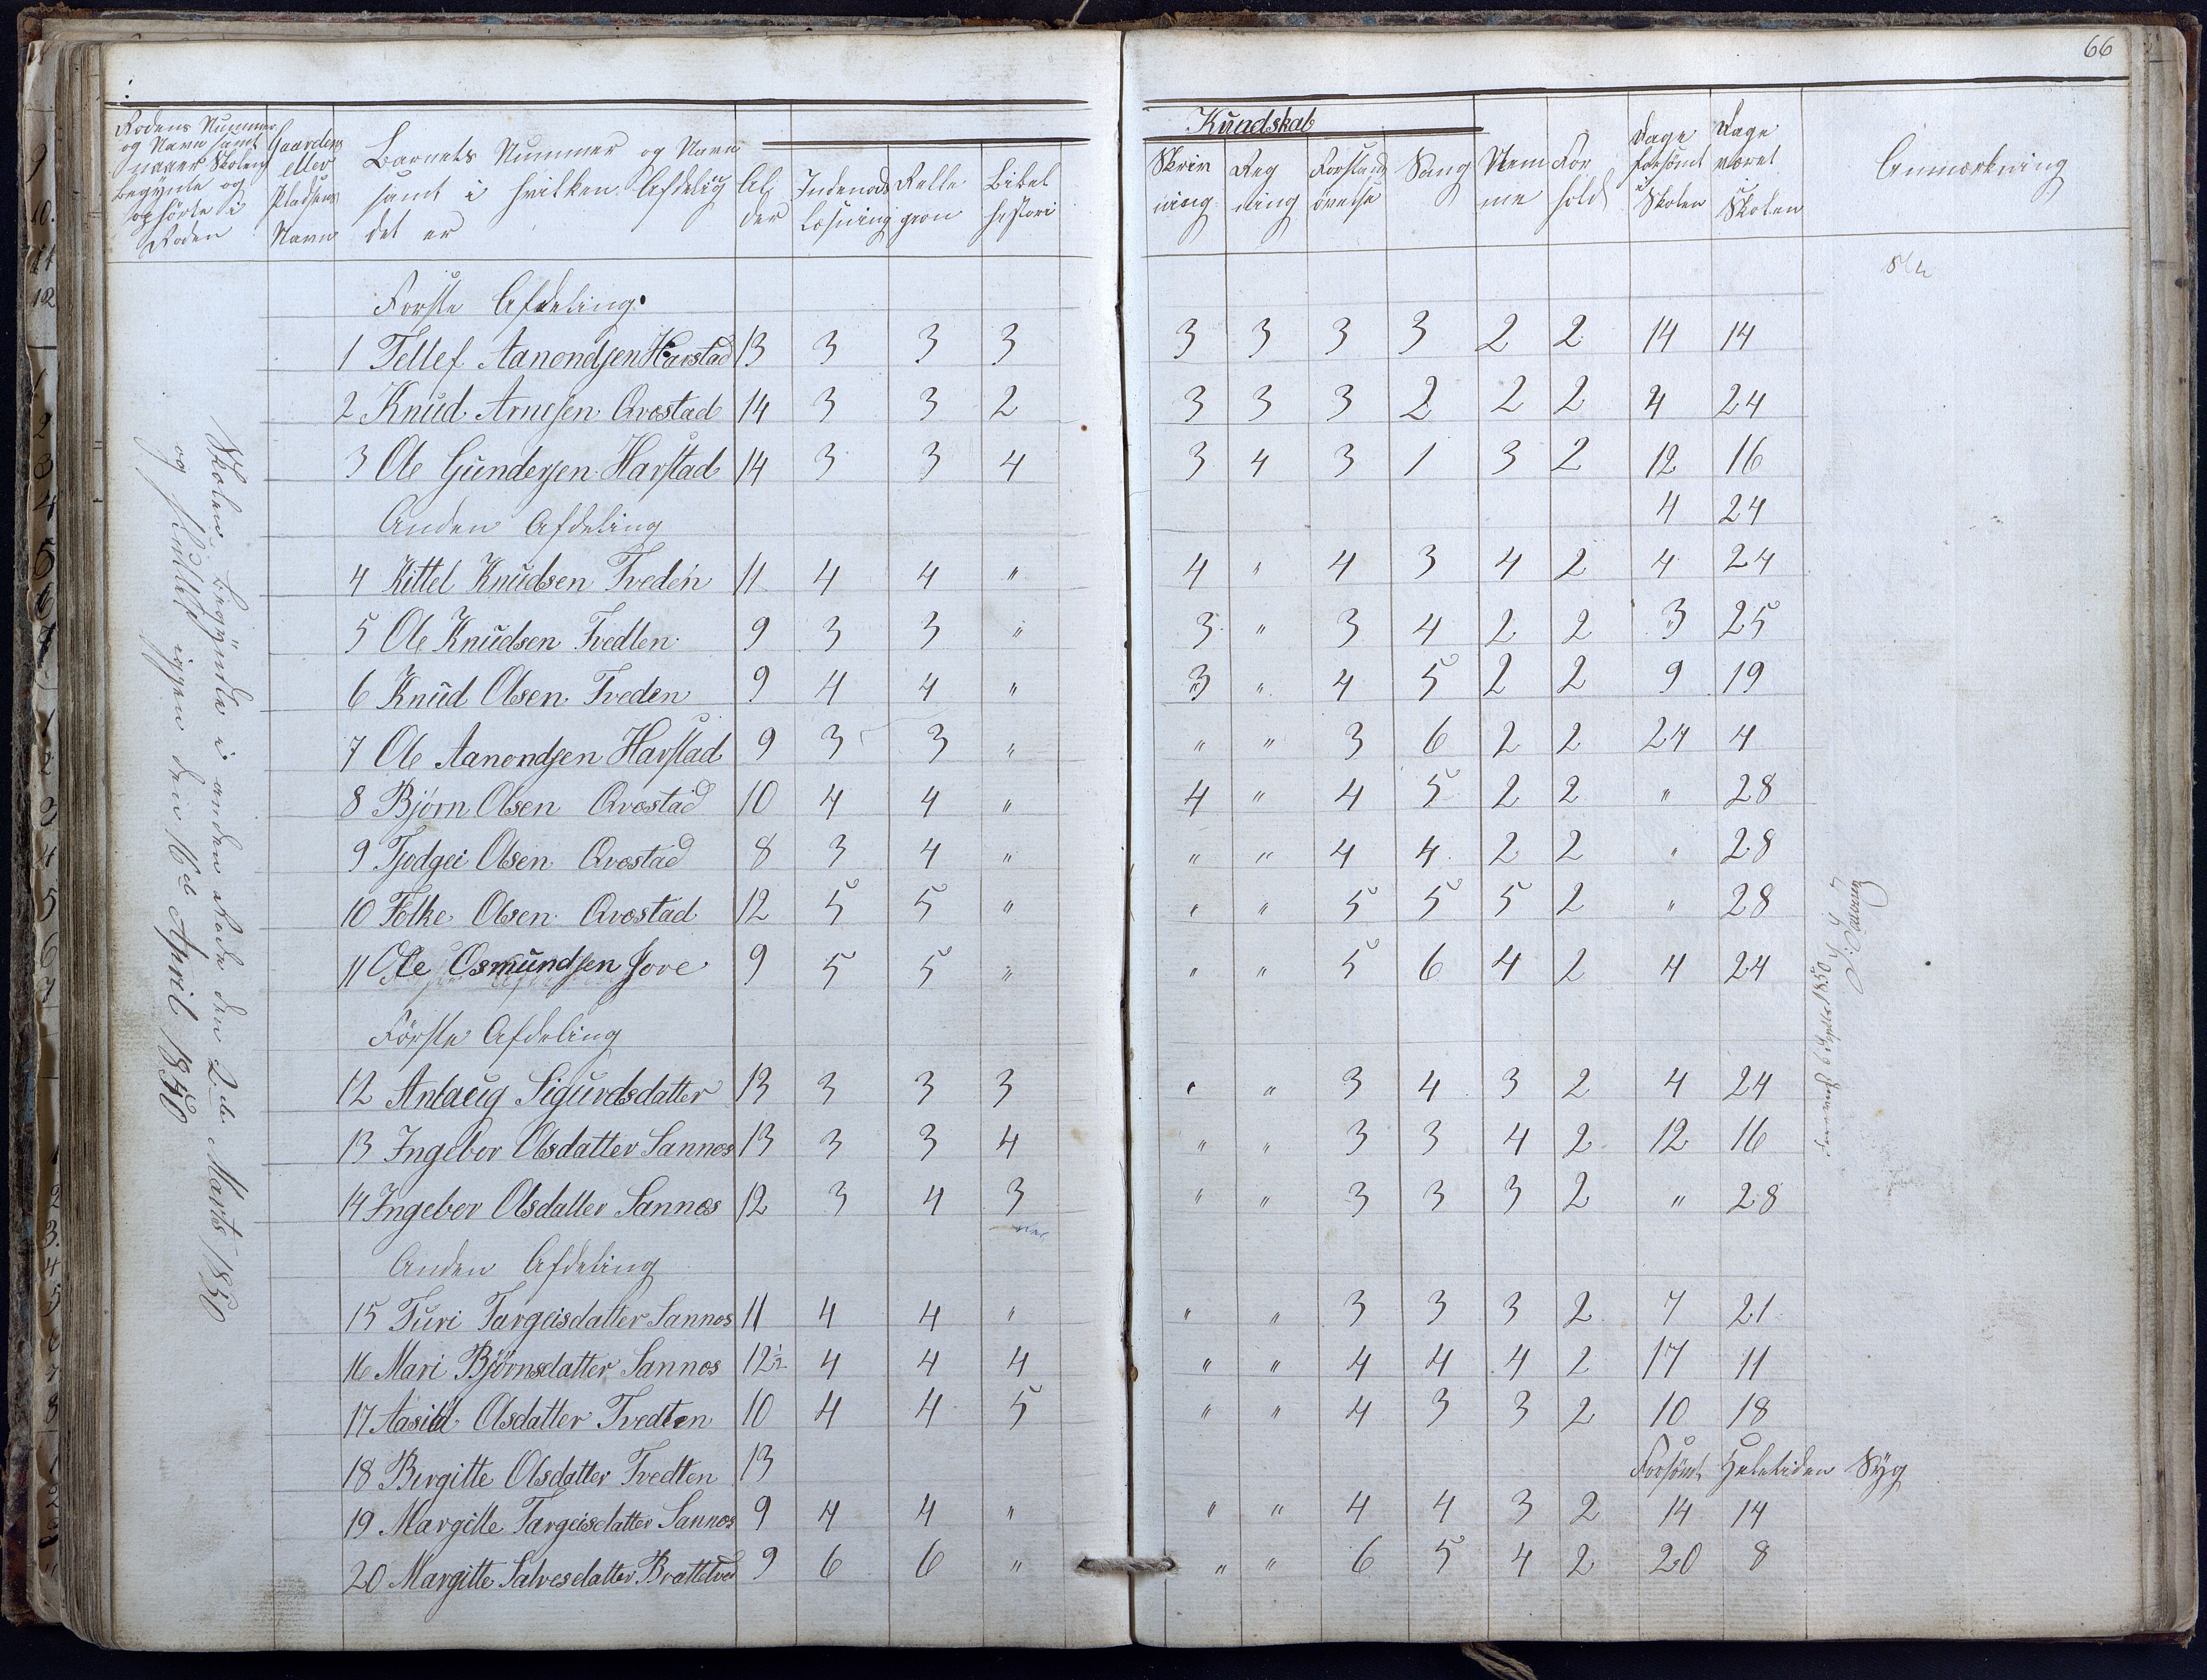 66
Rodens Nummer og Navn samt naaer Skolen begÿnte og ophörte i Roden
Gaardens eller Pladsens Navn
Barnets Nummer og Navn samt i hvilken Afdeling det er
Al der
Indenads Læsning
Relle gion
Bibel histori
Kundskab
Skriv ning
Reg ning
Forstands övelse
Sang
Nem me
For hold
Dage forsömt i Skolen
Dage været i Skolen
Anmærkning
Skolen begÿndte i anden Rode den 2de Marts 1850
og sluttet igjen den 16de April 1850
Forste Afdeling.
1 Tellef Aanondsen Harstad 13 3 3 3 3 3 3 3 2 2 14 14
2 Knud Arnesen Qvostad 14 3 3 2 3 3 3 2 2 2 4 24
3 Ole Gundersen Harstad 14 3 3 4 3 4 3 1 3 2 12 16
Anden Afdeling 4 24
4 Kittel Knudsen Tveden 11 4 4 " 4 " 4 3 4 2 4 24
5 Ole Knudsen Tvedten 9 3 3 " 3 " 3 4 2 2 3 25
6 Knud Olsen Tveden 9 4 4 " 3 " 4 5 2 2 9 19
7 Ole Aanondsen Harstad 9 3 3 " " " 3 6 2 2 24 4
8 Bjørn Olsen Qvostad 10 4 4 " 4 " 4 5 2 2 " 28
9 Tjodgei Olsen Qvostad 8 3 4 " " " 4 4 2 2 " 28
10 Folke Olsen Qvostad 12 5 5 " " " 5 5 5 2 " 28
11 Ole Osmundsen Jore 9 5 5 " " " 5 6 4 2 4 24
Förste Afdeling
12 Anlaug Sigurdsdatter 13 3 3 3 " " 3 4 3 2 4 24
13 Ingebor Olsdatter Sannes 13 3 3 4 " " 3 3 4 2 12 16
14 Ingebor Olsdatter Sannes 12 3 4 3 " " 3 3 3 2 " 28
Anden Afdeling
15 Turi Targeisdatter Sannes 11 4 4 " " " 3 3 3 2 7 21
16 Mari Bjørnsdatter Sannes 12½ 4 4 4 " " 4 4 4 2 17 11
17 Aasild Olsdatter Tvedten 10 4 4 5 " " 4 3 3 2 10 18
18 Birgitte Olsdatter Tvedten 13 Forsömt Heletiden Sÿg
19 Margitte Targeisdatter Sannes 9 4 4 " " " 4 4 3 2 14 14
20 Margitte Salvesdatter Brattetved 9 6 6 " " " 6 5 4 2 20 8
1850